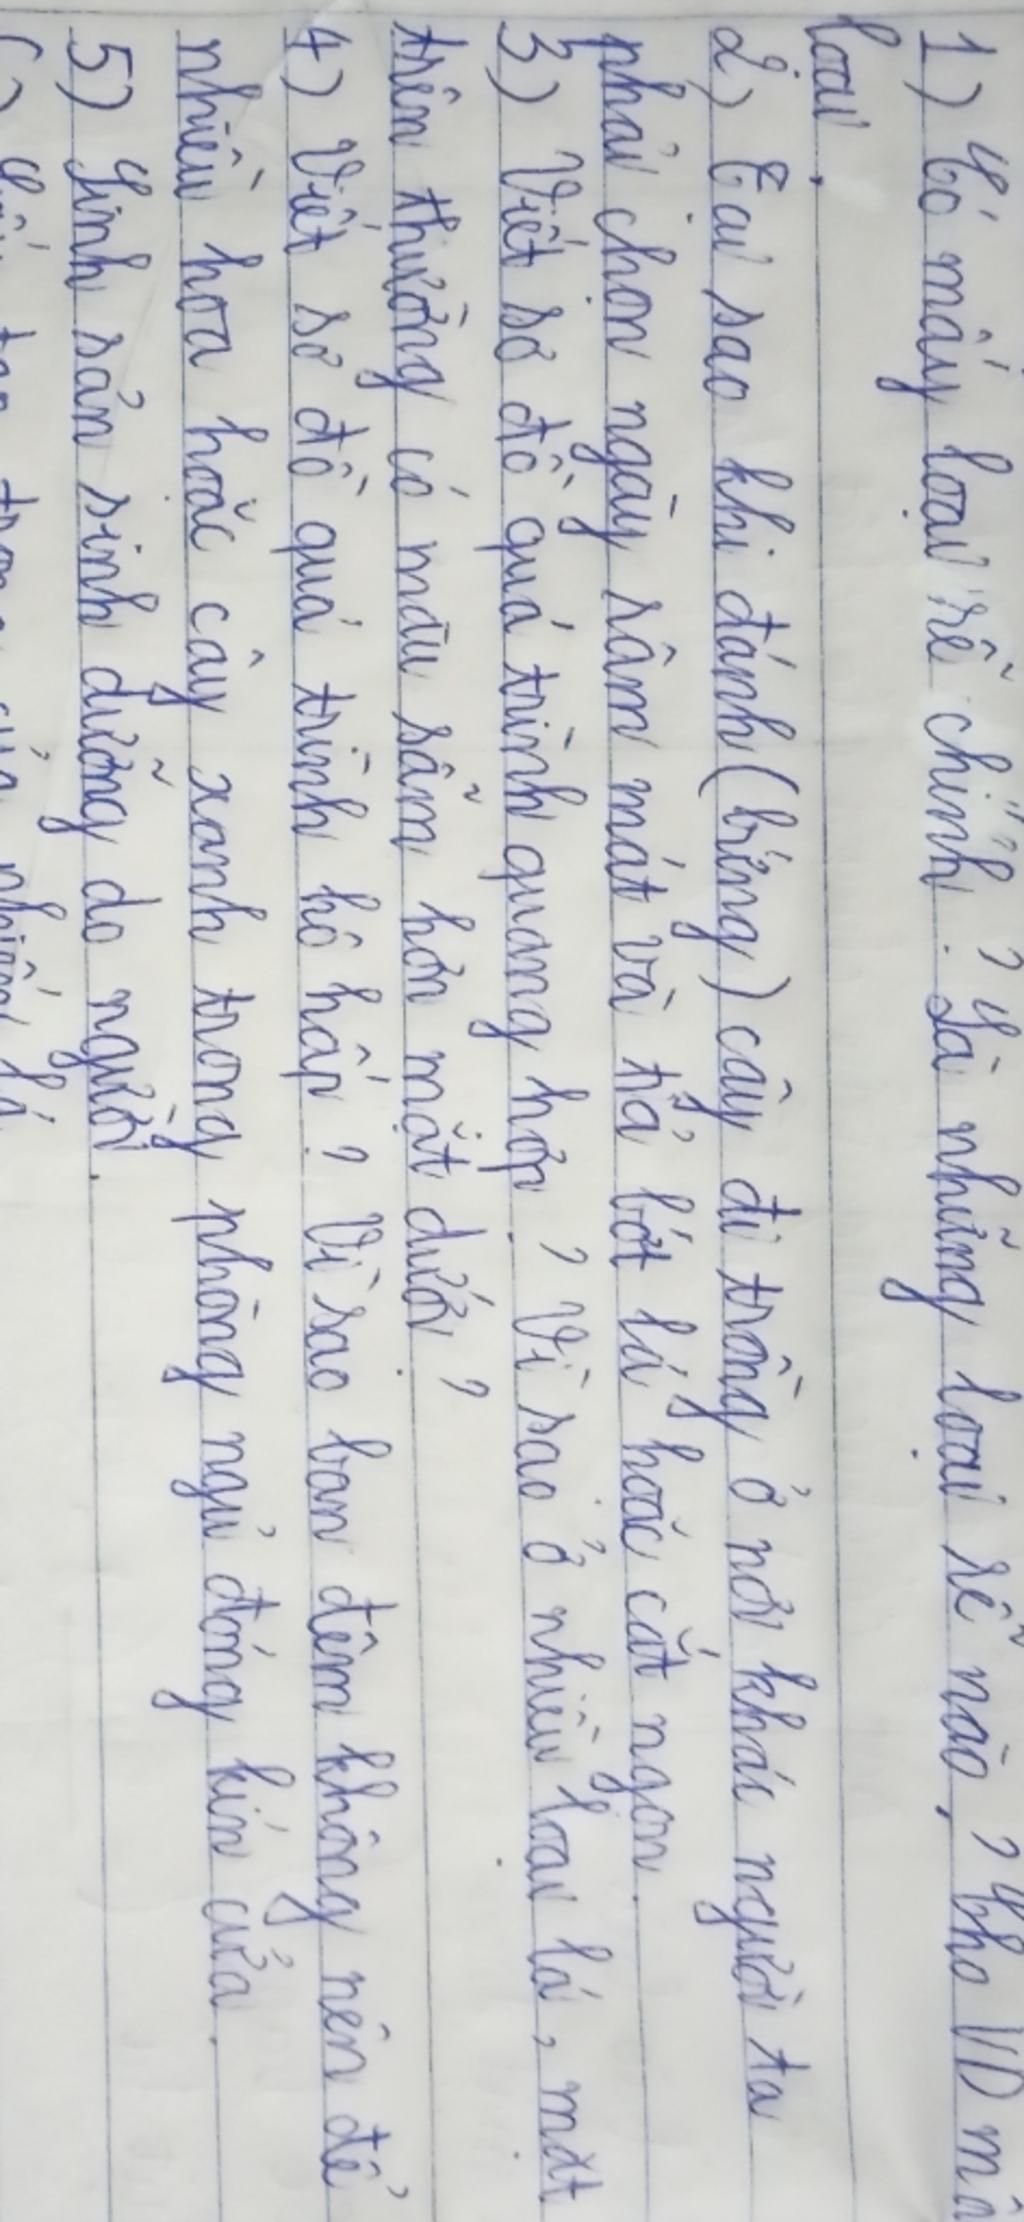 1) Có mấy loại rễ chính? Là những loại rễ nào? Cho VD mỗ
loại.
2) Tại sao khi đánh (bứng) cây đi trồng ở nơi khác người ta
phải chọn ngày râm mát và tỉa bớt lá hoặc cắt ngọn.
3) Viết sơ đồ quá trình quang hợp? Vì sao ở nhiều loại lá, mặt
trên thường có màu sẫm hơn mặt dưới?
4) Viết sơ đồ quá trình hô hấp? Vì sao ban đêm không nên để
nhiều hoa hoặc cây xanh trong phòng ngủ đóng kín cửa.
5) Sinh sản sinh dưỡng do người.